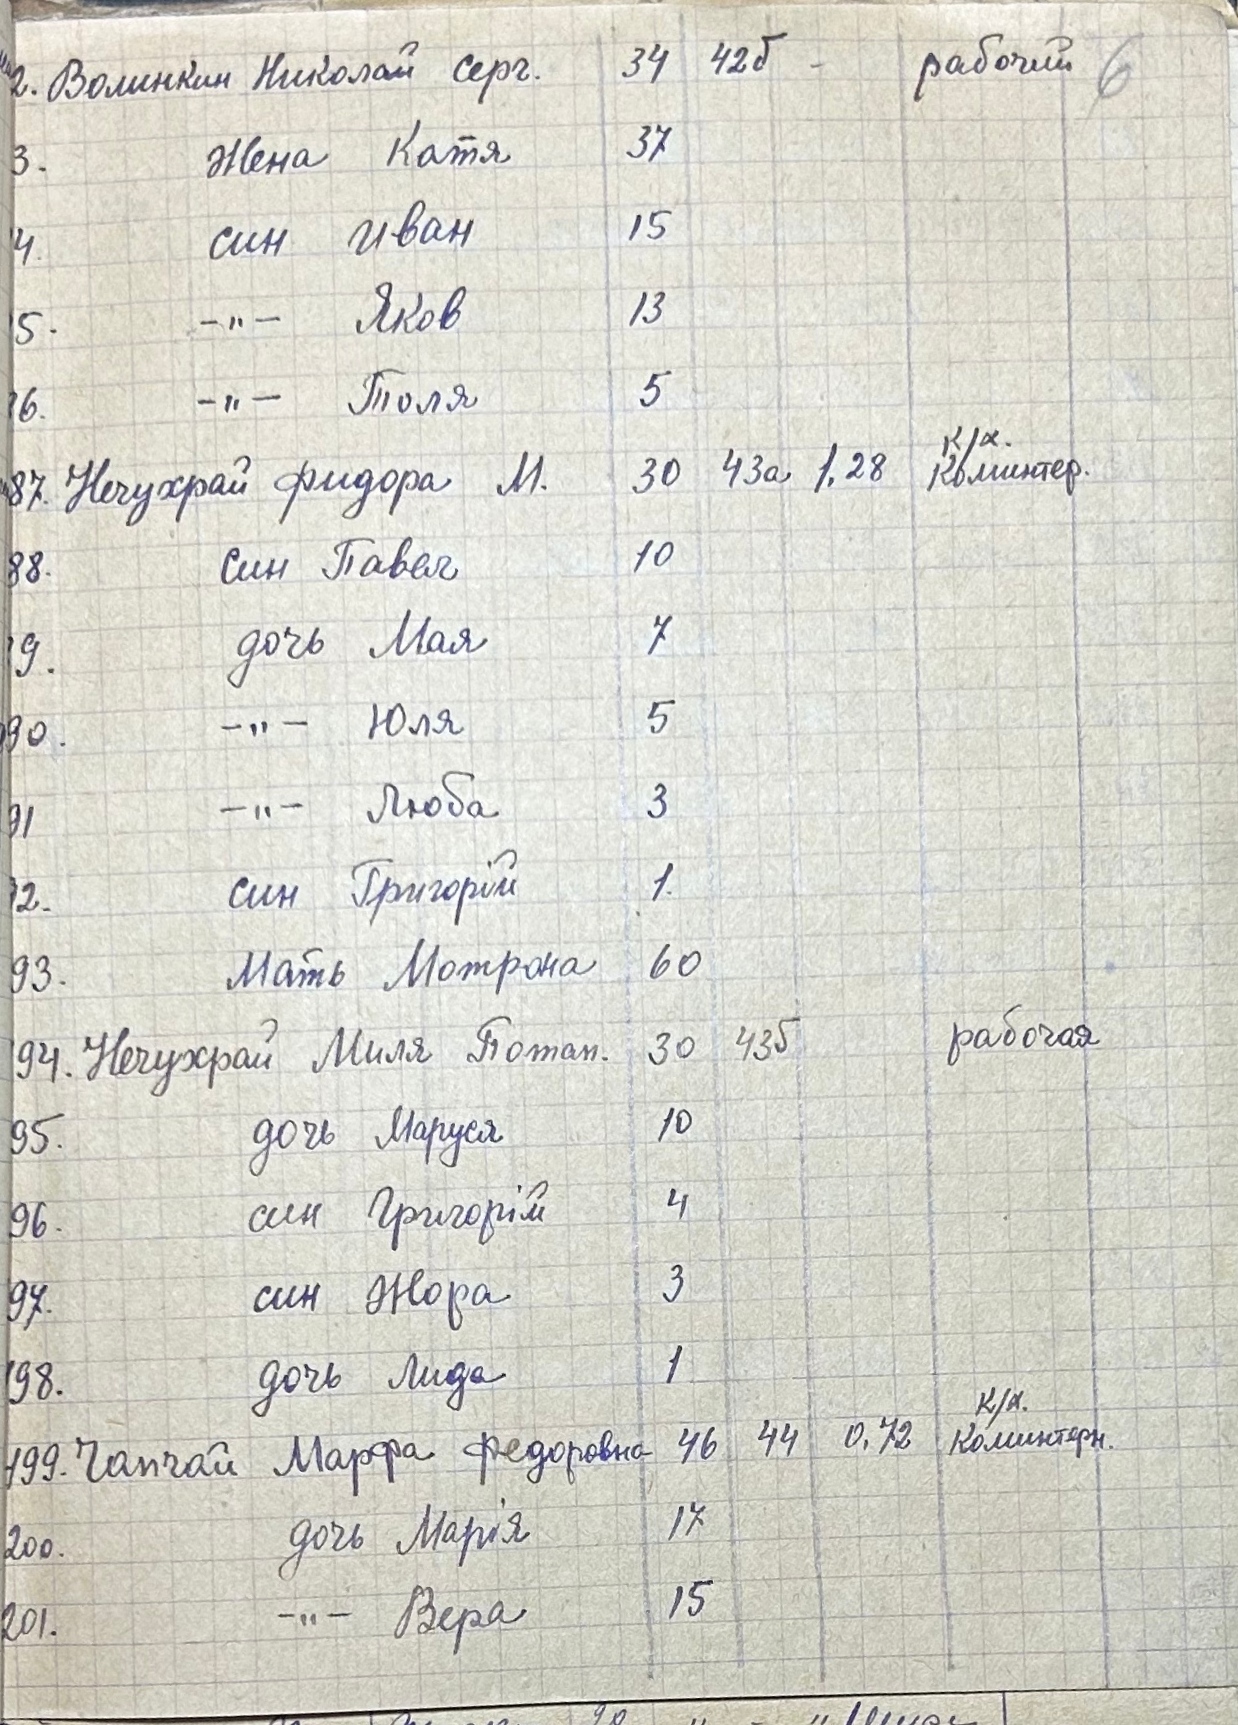 2. Волинкин Николай Серг. 34 42б - рабочий 6
3. Жена Катя 37
4. син Иван 15
5. -"- Яков 13
6. -"- Толя 5
к/х.
87. Нечухрай Фидора М. 30 43а 1,28 Коминтер.
88. син Павел 10
9. дочь Мая 7
90. -"- Юля 5
91 -"- Люба 3
92. син Григорій 1
93. Мать Мотрона 60
94. Нечухрай Миля Потап. 30 43б рабочая
95. дочь Маруся 10
96. син Григорій 4
97. син Жора 3
198. дочь Лида 1
к/х.
199. Чапчай Марфа Федоровна 46 44 0,72 Коминтерн.
200. дочь Марія 17
201. -"- Вера 15